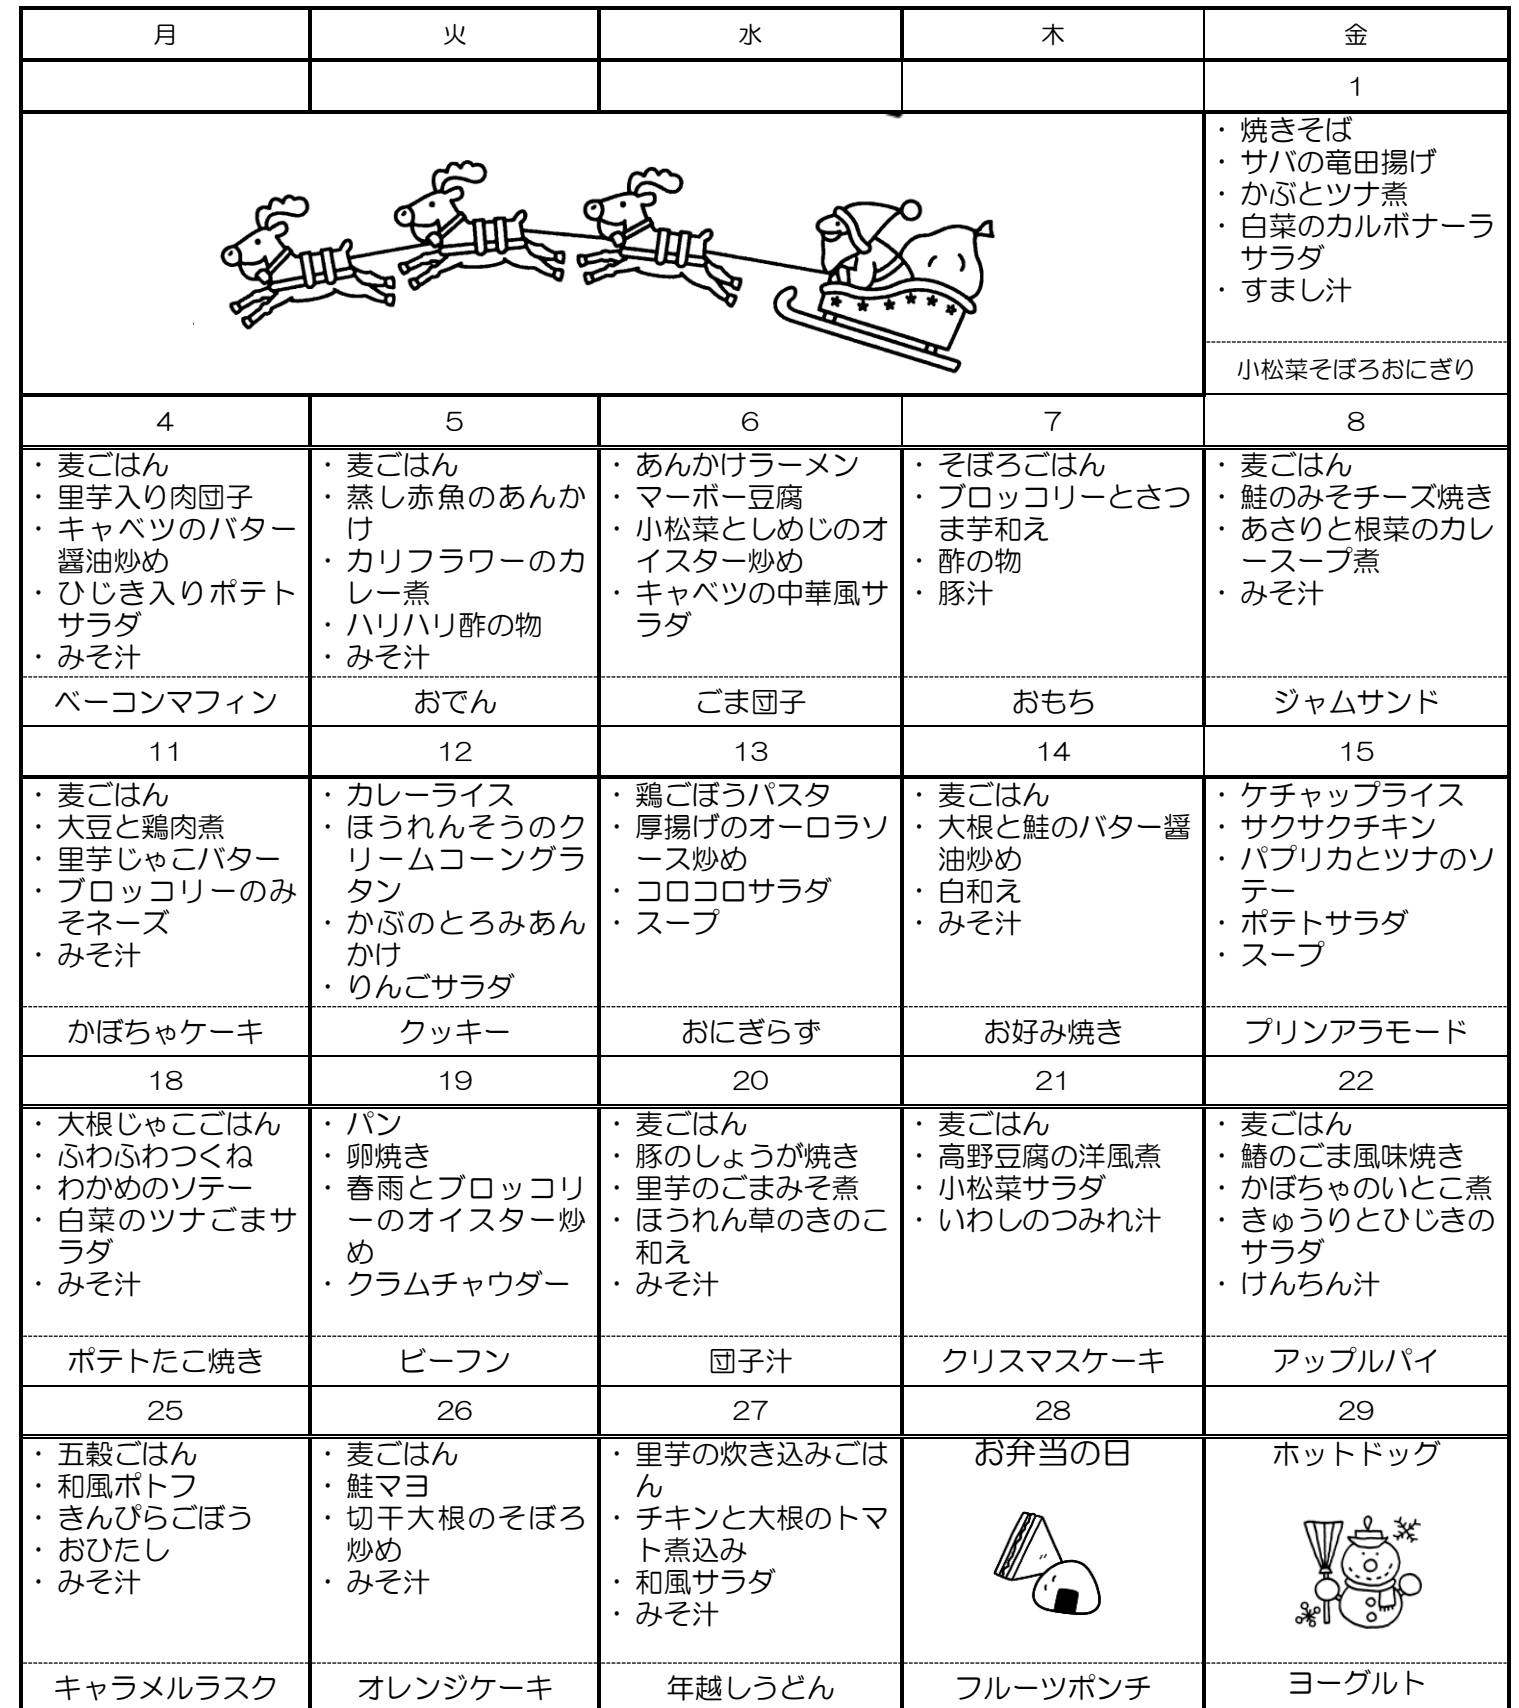 月 火 水 木 金
1
・焼きそば
・サバの竜田揚げ
・かぶとツナ煮
・白菜のカルボナーラ
サラダ
・すまし汁
小松菜そぼろおにぎり
4 5 6 7 8
・麦ごはん
・里芋入り肉団子
・キャベツのバター
醤油炒め
・ひじき入りポテト
サラダ
・みそ汁
・麦ごはん
・蒸し赤魚のあんか
け
・カリフラワーのカ
レー煮
・ハリハリ酢の物
・みそ汁
・あんかけラーメン
・マーボー豆腐
・小松菜としめじのオ
イスター炒め
・キャベツの中華風サ
ラダ
・そぼろごはん
・ブロッコリーとさつ
ま芋和え
・酢の物
・豚汁
・麦ごはん
・鮭のみそチーズ焼き
・あさりと根菜のカレ
ースープ煮
・みそ汁
ベーコンマフィン おでん ごま団子 おもち ジャムサンド
11 12 13 14 15
・麦ごはん
・大豆と鶏肉煮
・里芋じゃこバター
・ブロッコリーのみ
そネーズ
・みそ汁
・カレーライス
・ほうれんそうのク
リームコーングラ
タン
・かぶのとろみあん
かけ
・りんごサラダ
・鶏ごぼうパスタ
・厚揚げのオーロラソ
ース炒め
・コロコロサラダ
・スープ
・麦ごはん
・大根と鮭のバター醤
油炒め
・白和え
・みそ汁
・ケチャップライス
・サクサクチキン
・パプリカとツナのソ
テー
・ポテトサラダ
・スープ
かぼちゃケーキ クッキー おにぎらず お好み焼き プリンアラモード
18 19 20 21 22
・大根じゃこごはん
・ふわふわつくね
・わかめのソテー
・白菜のツナごまサ
ラダ
・みそ汁
・パン
・卵焼き
・春雨とブロッコリ
ーのオイスター炒
め
・クラムチャウダー
・麦ごはん
・豚のしょうが焼き
・里芋のごまみそ煮
・ほうれん草のきのこ
和え
・みそ汁
・麦ごはん
・高野豆腐の洋風煮
・小松菜サラダ
・いわしのつみれ汁
・麦ごはん
・鰆のごま風味焼き
・かぼちゃのいとこ煮
・きゅうりとひじきの
サラダ
・けんちん汁
ポテトたこ焼き ビーフン 団子汁 クリスマスケーキ アップルパイ
25 26 27 28 29
・五穀ごはん
・和風ポトフ
・きんぴらごぼう
・おひたし
・みそ汁
・麦ごはん
・鮭マヨ
・切干大根のそぼろ
炒め
・みそ汁
・里芋の炊き込みごは
ん
・チキンと大根のトマ
ト煮込み
・和風サラダ
・みそ汁
お弁当の日
ホットドッグ
キャラメルラスク オレンジケーキ 年越しうどん フルーツポンチ ヨーグルト